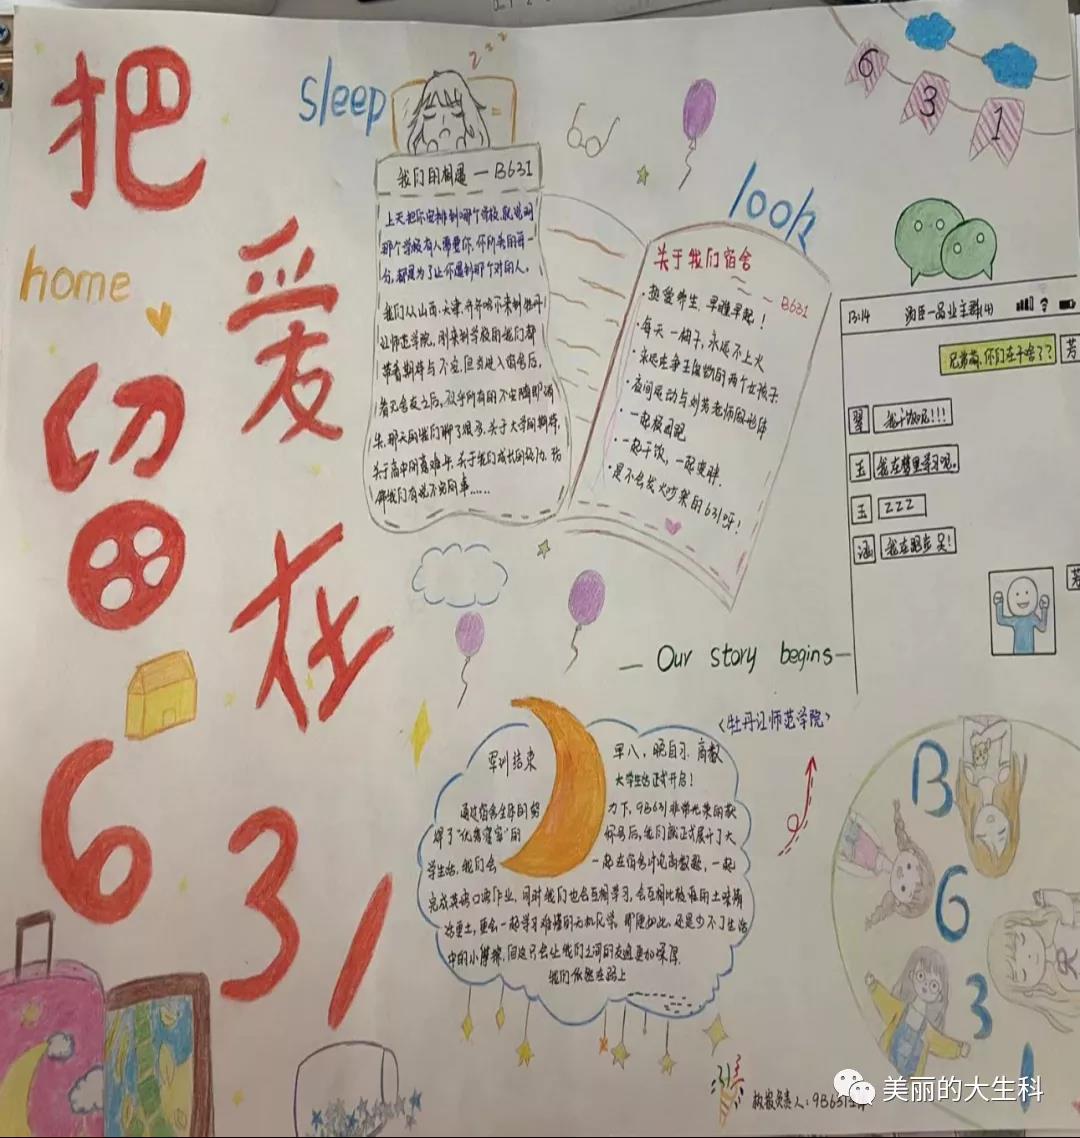 把爱
留在
631
sleep
home
look
6 3 1
我们的相遇 — B631
上天把你安排到哪个学校,就说明
那个学校有人需要你,你所失的每一
分,都是为了让你遇到那个对的人。
我们从山西、天津、齐齐哈尔来到牡丹
江师范学院,刚来到学校的我们都
带着期待与不安,但当进入宿舍后,
看见舍友之后,似乎所有的不安随即消
失,那天的我们聊了很多,关于大学的期待,
关于高中的艰难与,关于我们成长的经历,仿
佛我们有说不完的事……
关于我们宿舍
— B631
·热爱养生,早睡早起!
·每天一柚子,永远不上火
·永远在争王俊勃的两个女孩子
·夜间运动与刘芳老师做形体
·一起校园跑
·一起干饭,一起变胖.
·是不会发火吵架的631呀!
13:14
为臣一品业主群(4)
兄弟萌,你们在干啥了?
芳
翠
我干饭呢!!!
玉
我在梦里学习呢。
玉
ZZZ
涵
我在跑步 吴!
— Our story begins —
《牡丹江师范学院》
军训结束
早八,晚自习,高数
大学生活正式开启!
通过宿舍全体的努
力下,9B631非常光荣的获
得了“优秀寝室”的
称号后,我们就正式展开了大
学生活,我们会
一起在宿舍讨论高数题,一起
完成英语口语作业,同时我们也会互相学习,会互相比较谁的土味情
话更土,更会一起学习难懂的无机化学。即便如此,还是少不了生活
中的小摩擦,但这只会让我们之间的友谊更加深厚.
我们依然在路上
B
6
3
1
板报负责人:9B631全体
美丽的大生科